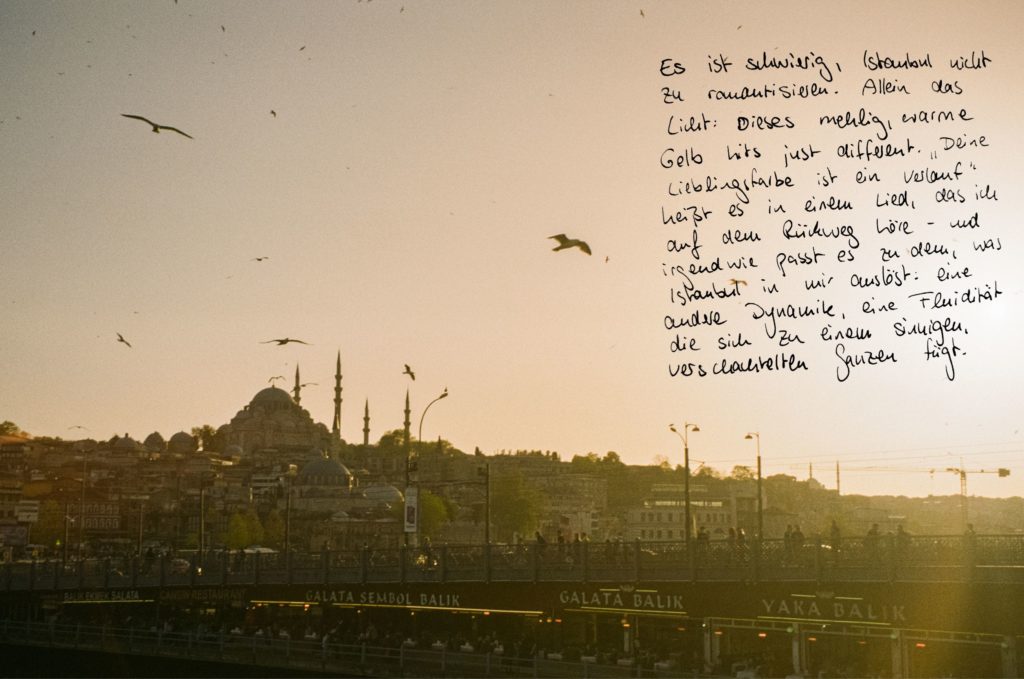 Es ist schwierig, Istanbul nicht
zu romantisieren. Allein das
Licht: Dieses mehlig, warme
Gelb hits just different. „Deine
Lieblingsfarbe ist ein Verlauf“
heißt es in einem Lied, das ich
auf dem Rückweg höre – und
irgendwie passt es zu dem, was
Istanbul in mir auslöst: eine
andere Dynamik, eine Fluidität
die sich zu einem sinnigen,
verschachtelten Ganzen fügt.
BALIK EKMEK SALATA
RESTAURANT
GALATA SEMBOL BALIK
GALATA BALIK
YAKA BALIK